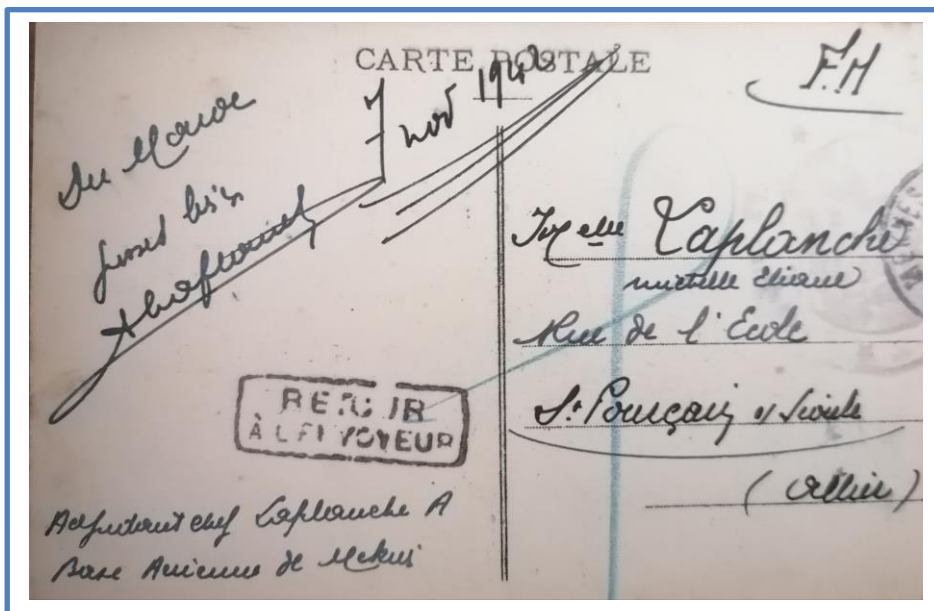 CARTE POSTALE
F.M
7 nov 1942
Du Maroc
bien
ALaplanche
Melle Laplanche
Eliane
Rue de l'Ecole
St Pourçain s/ Sioule
(Allier)
MEKNES
RETOUR
À L'ENVOYEUR
Adjudant chef Laplanche A
Base Aérienne de Meknès